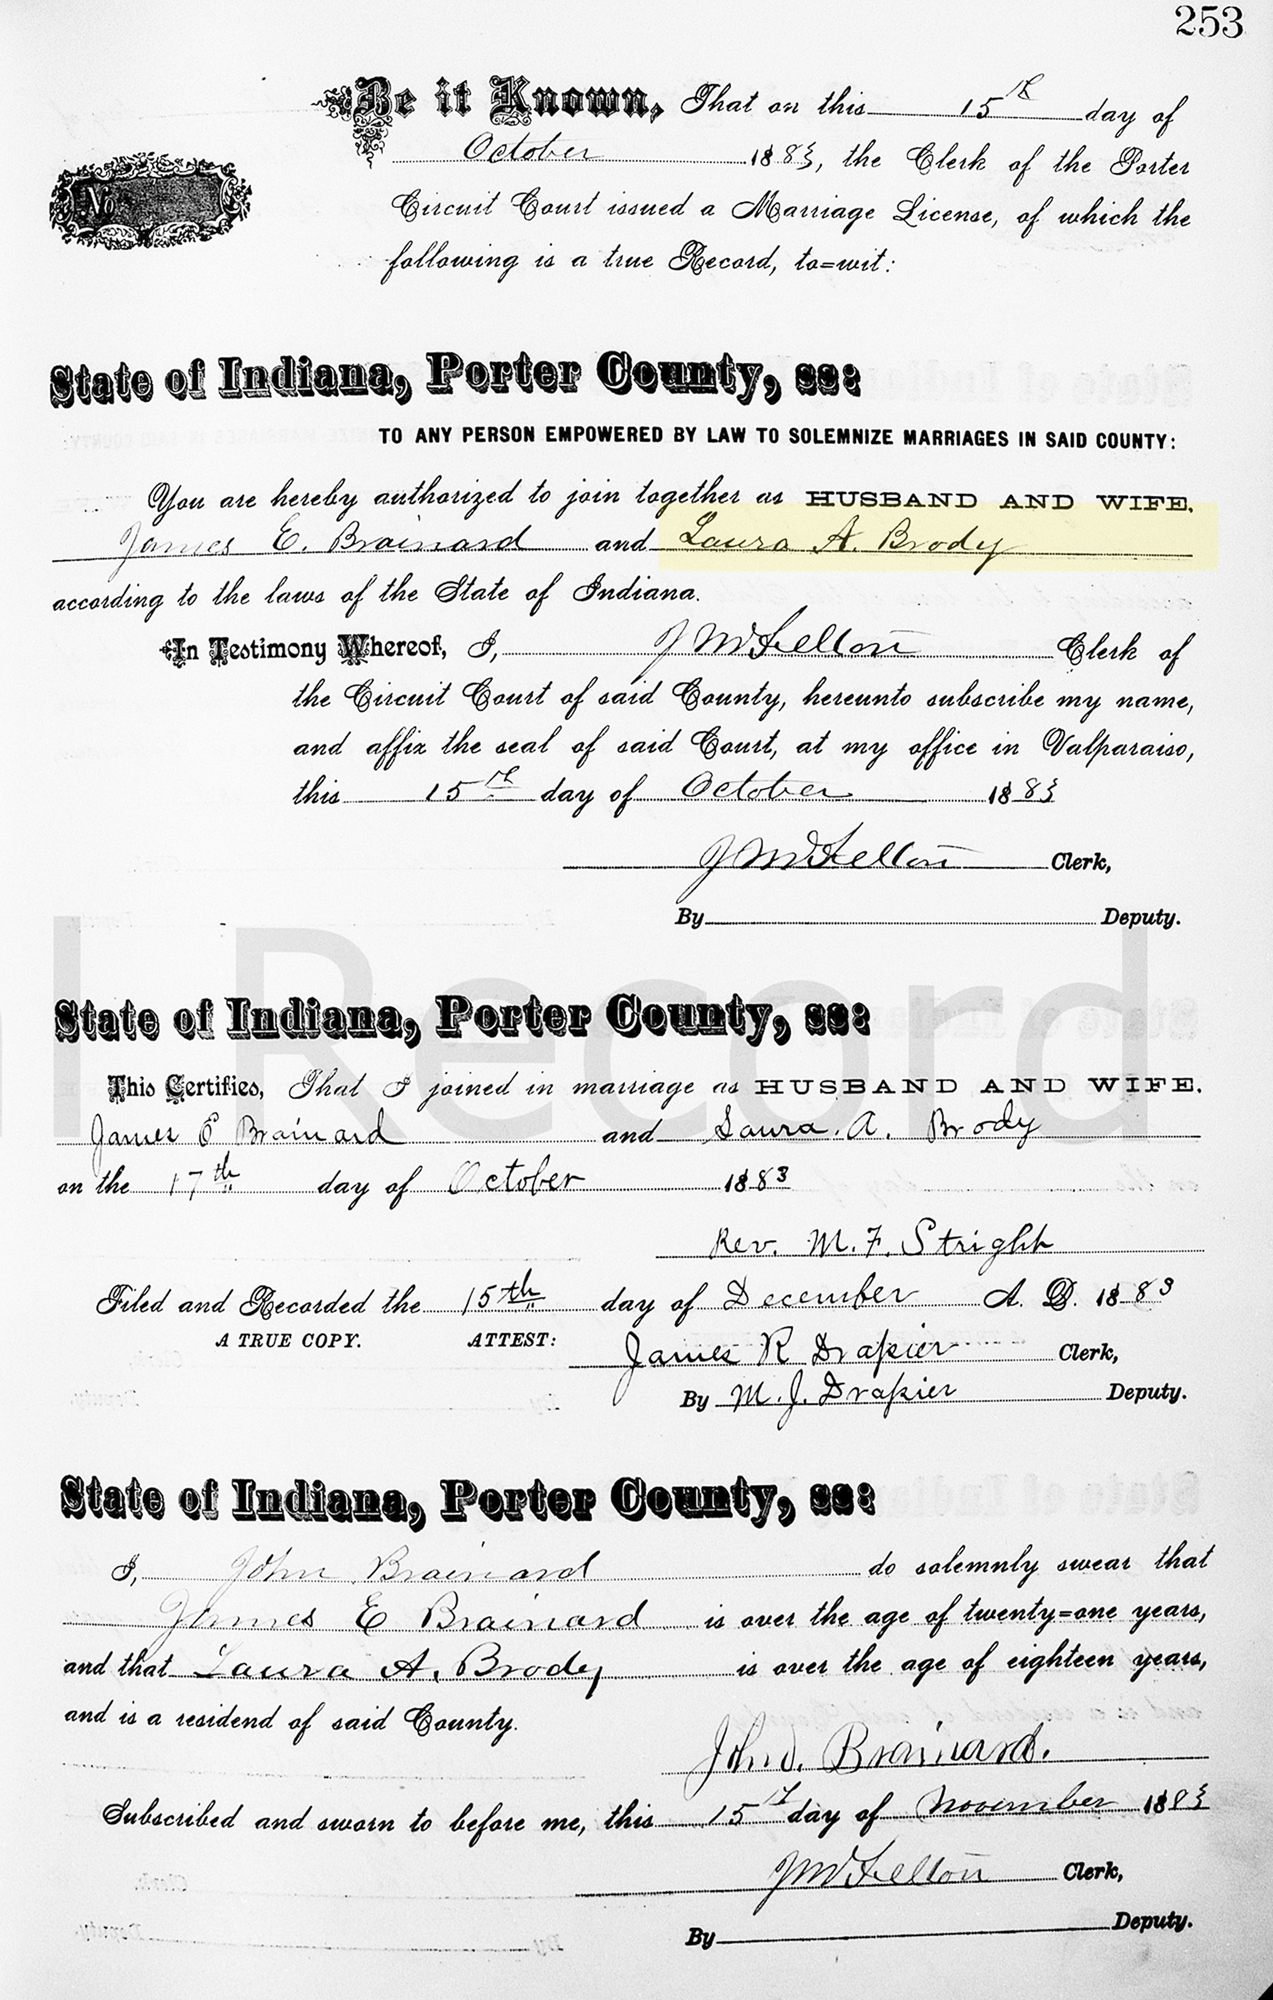 253
Be it Known, That on this 15th day of
October 1883, the Clerk of the Porter
Circuit Court issued a Marriage License, of which the
following is a true Record, to=wit:
No
State of Indiana, Porter County, ss:
TO ANY PERSON EMPOWERED BY LAW TO SOLEMNIZE MARRIAGES IN SAID COUNTY:
You are hereby authorized to join together as HUSBAND AND WIFE.
James E. Brainard and Laura A. Brody
according to the laws of the State of Indiana.
In Testimony Whereof, I, J M Fellon Clerk of
the Circuit Court of said County, hereunto subscribe my name,
and affix the seal of said Court, at my office in Valparaiso,
this 15th day of October 1883
J M Fellon Clerk,
By Deputy.
Record
State of Indiana, Porter County, ss:
This Certifies, That I joined in marriage as HUSBAND AND WIFE.
James E Brainard and Laura. A. Brody
on the 17th day of October 1883
Rev. M. F. Stright
Filed and Recorded the 15th day of December A. D. 1883
A TRUE COPY. ATTEST:
James R Drapier Clerk,
By M. J. Drapier Deputy.
State of Indiana, Porter County, ss:
I, John Brainard do solemnly swear that
James E Brainard is over the age of twenty=one years,
and that Laura A. Brody is over the age of eighteen years,
and is a residend of said County.
John. Brainard.
Subscribed and sworn to before me, this 15th day of November 1883
J M Fellon Clerk,
By Deputy.